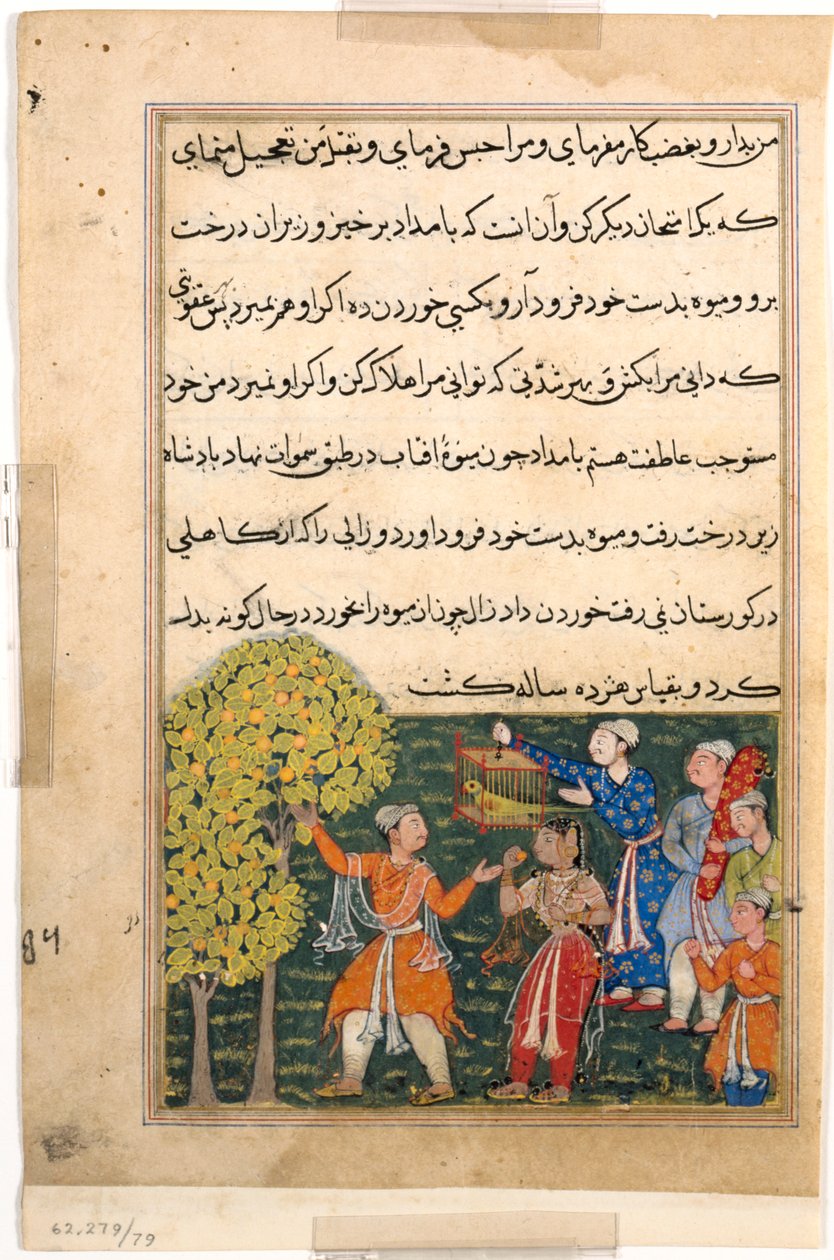 من بدار و بغضب کار مفرمای و مرا حبس فرمای و بقتل من تعجیل منمای
که یک امتحان دیکر کن و آن انست که بامداد برخیز و زیر ان درخت
برو و میوه بدست خود فرود آر و بکسی خوردن ده اکر او هم نمیرد پس بهر عقوبتی
که دانی مرا بکش و بهر شدتی که توانی مرا هلاک کن و اکر او نمیرد من خود
مستوجب عاطفت هستم بامداد چون میوهٔ افتاب در طبق سموات نهاد بادشاه
زیر درخت رفت و میوه بدست خود فرود اورد و زالی را که از کاهلی
در کورستان نمی رفت خوردن داد زال چون از میوه را بخورد در حال کونه بدل
کرد و بقیاس هژده ساله کشت
84
62.279/79